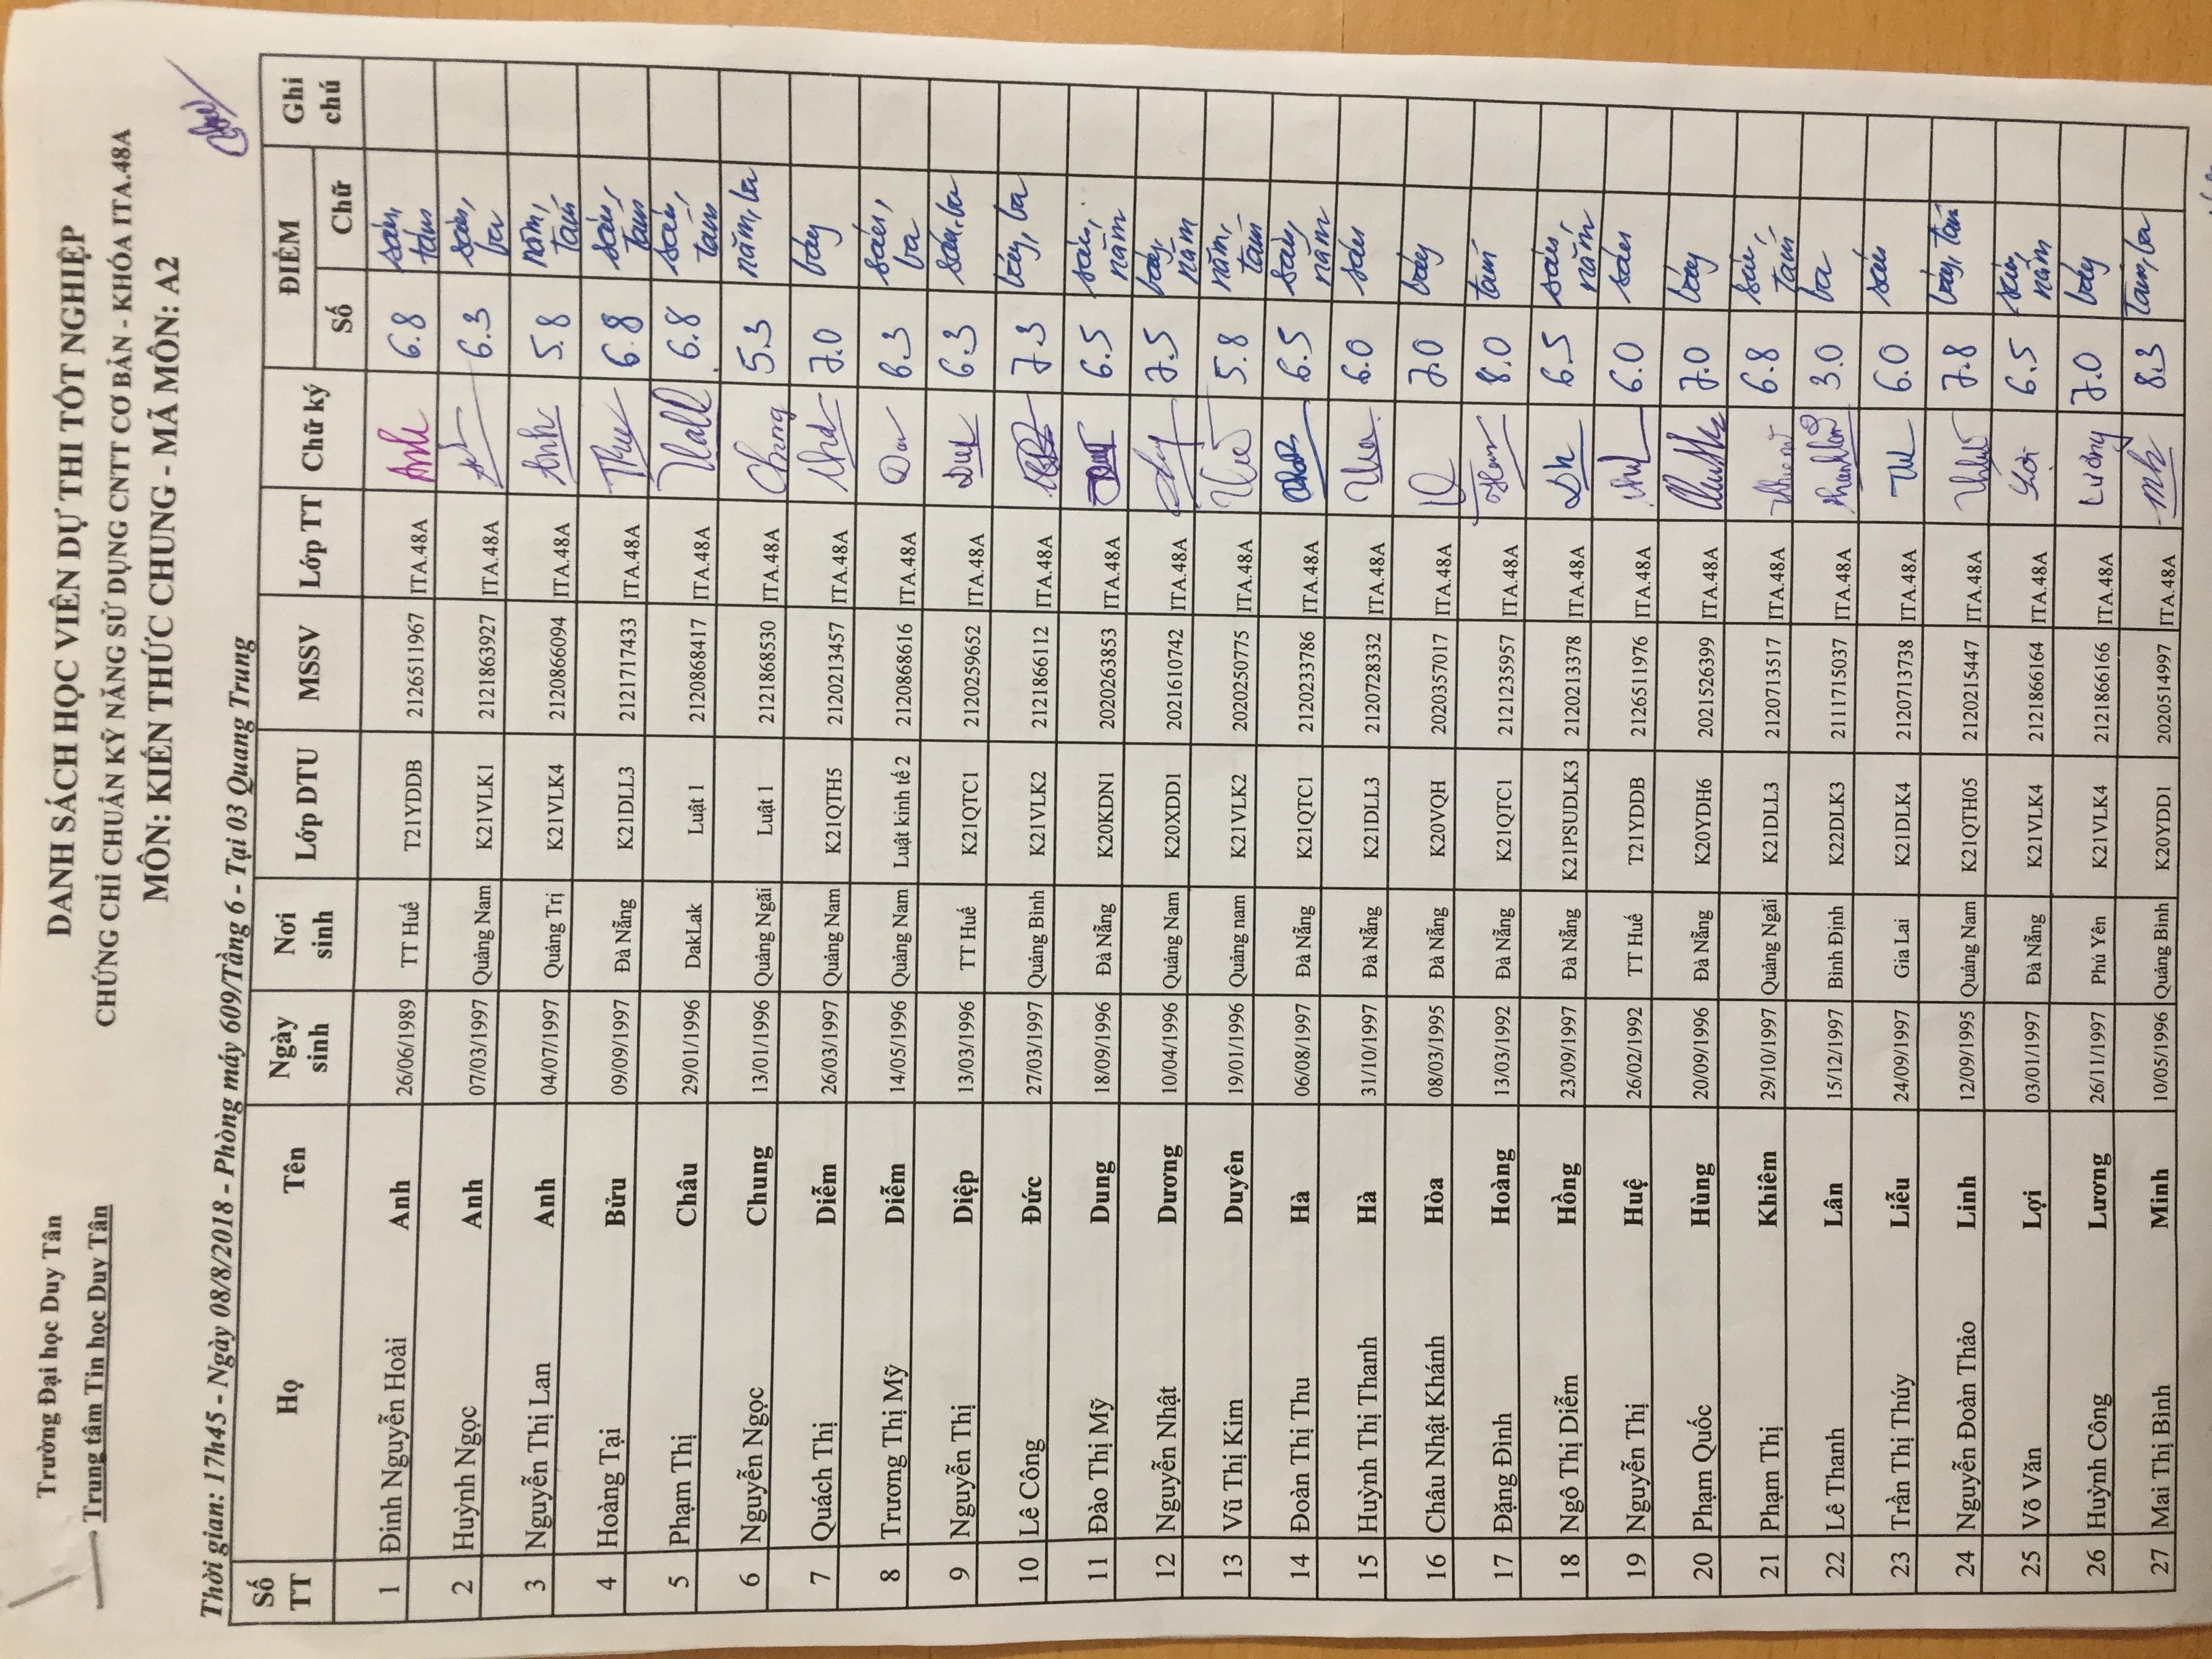 Trường Đại học Duy Tân
Trung tâm Tin học Duy Tân
DANH SÁCH HỌC VIÊN DỰ THI TỐT NGHIỆP
CHỨNG CHỈ CHUẨN KỸ NĂNG SỬ DỤNG CNTT CƠ BẢN - KHÓA ITA.48A
MÔN: KIẾN THỨC CHUNG - MÃ MÔN: A2
Thời gian: 17h45 - Ngày 08/8/2018 - Phòng máy 609/Tầng 6 - Tại 03 Quang Trung
Số TT Họ Tên Ngày sinh Nơi sinh Lớp DTU MSSV Lớp TT Chữ ký ĐIỂM Số Chữ Ghi chú
1 Đinh Nguyễn Hoài Anh 26/06/1989 TT Huế T21YDDB 2126511967 ITA.48A Anh 6.8 sáu, tám
2 Huỳnh Ngọc Anh 07/03/1997 Quảng Nam K21VLK1 2121863927 ITA.48A 6.3 sáu, ba
3 Nguyễn Thị Lan Anh 04/07/1997 Quảng Trị K21VLK4 2120866094 ITA.48A Anh 5.8 năm, tám
4 Hoàng Tại Bửu 09/09/1997 Đà Nẵng K21DLL3 2121717433 ITA.48A 6.8 sáu, tám
5 Phạm Thị Châu 29/01/1996 DakLak Luật 1 2120868417 ITA.48A 6.8 sáu, tám
6 Nguyễn Ngọc Chung 13/01/1996 Quảng Ngãi Luật 1 2121868530 ITA.48A Chung 5.3 năm, ba
7 Quách Thị Diễm 26/03/1997 Quảng Nam K21QTH5 2120213457 ITA.48A 7.0 bảy
8 Trương Thị Mỹ Diễm 14/05/1996 Quảng Nam Luật kinh tế 2 2120868616 ITA.48A 6.3 sáu, ba
9 Nguyễn Thị Diệp 13/03/1996 TT Huế K21QTC1 2120259652 ITA.48A 6.3 sáu, ba
10 Lê Công Đức 27/03/1997 Quảng Bình K21VLK2 2121866112 ITA.48A 7.3 bảy, ba
11 Đào Thị Mỹ Dung 18/09/1996 Đà Nẵng K20KDN1 2020263853 ITA.48A 6.5 sáu, năm
12 Nguyễn Nhật Dương 10/04/1996 Quảng Nam K20XDD1 2021610742 ITA.48A 7.5 bảy, năm
13 Vũ Thị Kim Duyên 19/01/1996 Quảng nam K21VLK2 2020250775 ITA.48A 5.8 năm, tám
14 Đoàn Thị Thu Hà 06/08/1997 Đà Nẵng K21QTC1 2120233786 ITA.48A 6.5 sáu, năm
15 Huỳnh Thị Thanh Hà 31/10/1997 Đà Nẵng K21DLL3 2120728332 ITA.48A 6.0 sáu
16 Châu Nhật Khánh Hòa 08/03/1995 Đà Nẵng K20VQH 2020357017 ITA.48A 7.0 bảy
17 Đặng Đình Hoàng 13/03/1992 Đà Nẵng K21QTC1 2121235957 ITA.48A 8.0 tám
18 Ngô Thị Diễm Hồng 23/09/1997 Đà Nẵng K21PSUDLK3 2120213378 ITA.48A 6.5 sáu, năm
19 Nguyễn Thị Huệ 26/02/1992 TT Huế T21YDDB 2126511976 ITA.48A 6.0 sáu
20 Phạm Quốc Hùng 20/09/1996 Đà Nẵng K20YDH6 2021526399 ITA.48A 7.0 bảy
21 Phạm Thị Khiêm 29/10/1997 Quảng Ngãi K21DLL3 2120713517 ITA.48A 6.8 sáu, tám
22 Lê Thanh Lân 15/12/1997 Bình Định K22DLK3 2111715037 ITA.48A 3.0 ba
23 Trần Thị Thúy Liễu 24/09/1997 Gia Lai K21DLK4 2120713738 ITA.48A 6.0 sáu
24 Nguyễn Đoàn Thảo Linh 12/09/1995 Quảng Nam K21QTH05 2120215447 ITA.48A 7.8 bảy, tám
25 Võ Văn Lợi 03/01/1997 Đà Nẵng K21VLK4 2121866164 ITA.48A Lợi 6.5 sáu, năm
26 Huỳnh Công Lương 26/11/1997 Phú Yên K21VLK4 2121866166 ITA.48A Lương 7.0 bảy
27 Mai Thị Bình Minh 10/05/1996 Quảng Bình K20YDD1 2020514997 ITA.48A 8.3 Tám, ba